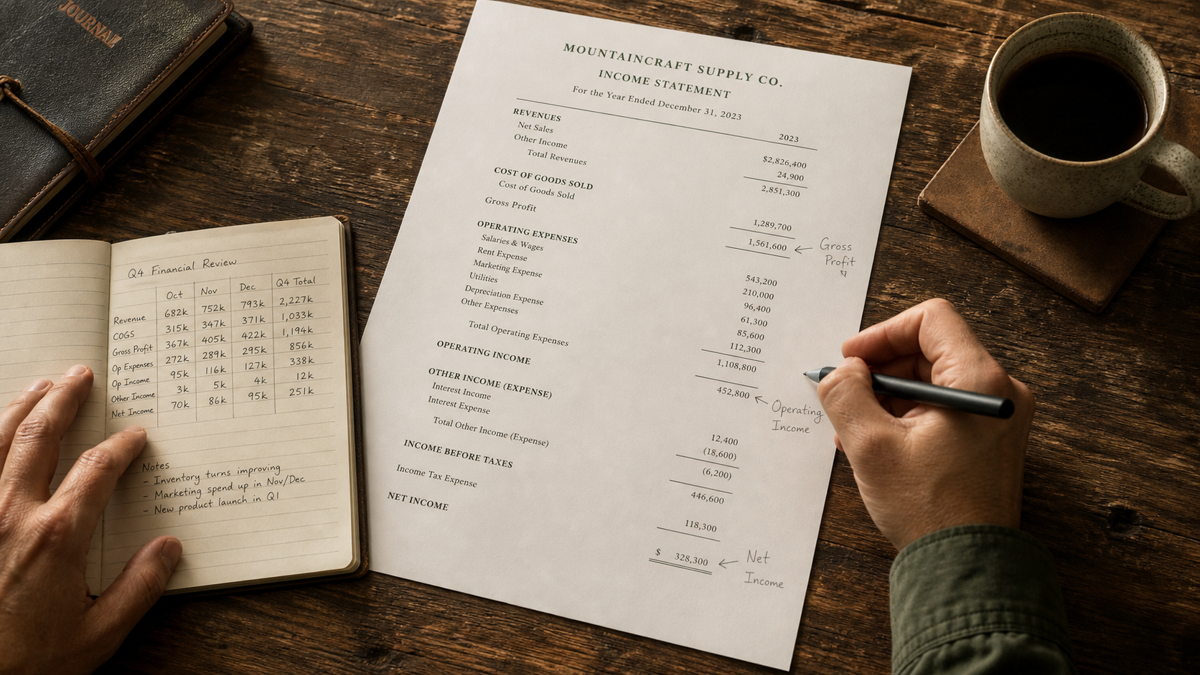 JOURNAL
Q4 Financial Review
Oct Nov Dec Q4 Total
Revenue 682k 752k 793k 2,227k
COGS 315k 347k 371k 1,033k
Gross Profit 367k 405k 422k 1,194k
Op Expenses 272k 289k 295k 856k
Op Income 95k 116k 127k 338k
Other Income 3k 5k 4k 12k
Net Income 70k 86k 95k 251k
Notes
- Inventory turns improving
- Marketing spend up in Nov/Dec
- New product launch in Q1
MOUNTAINCRAFT SUPPLY CO.
INCOME STATEMENT
For the Year Ended December 31, 2023
2023
REVENUES
Net Sales $2,826,400
Other Income 24,900
Total Revenues 2,851,300
COST OF GOODS SOLD
Cost of Goods Sold 1,289,700
Gross Profit 1,561,600 ← Gross
Profit
OPERATING EXPENSES
Salaries & Wages 543,200
Rent Expense 210,000
Marketing Expense 96,400
Utilities 61,300
Depreciation Expense 85,600
Other Expenses 112,300
Total Operating Expenses 1,108,800
OPERATING INCOME 452,800 ← Operating
Income
OTHER INCOME (EXPENSE)
Interest Income 12,400
Interest Expense (18,600)
Total Other Income (Expense) (6,200)
INCOME BEFORE TAXES 446,600
Income Tax Expense 118,300
NET INCOME $ 328,300 ← Net
Income